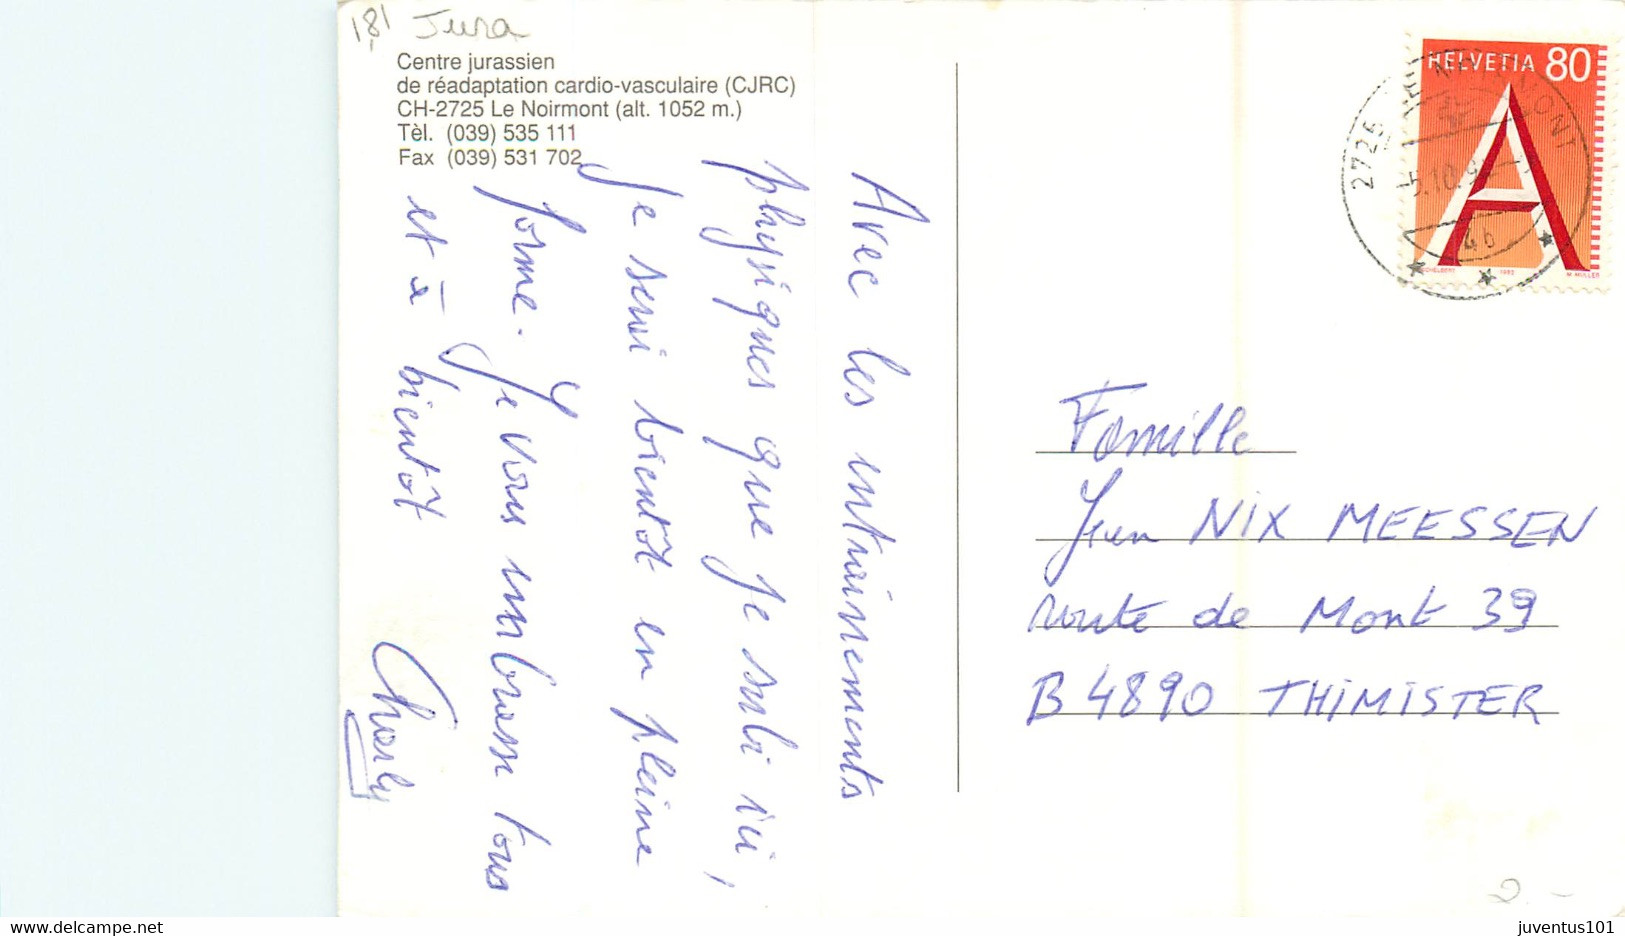 181 Jura
Centre jurassien
de réadaptation cardio-vasculaire (CJRC)
CH-2725 Le Noirmont (alt. 1052 m.)
Tèl. (039) 535 111
Fax (039) 531 702
Avec les entrainements
physiques que je subi ici,
je serai bientôt en pleine
forme. Je vous embrasse tous
et à bientôt
Charly
HELVETIA 80
A
1993
M. MÜLLER
2725 LE NOIRMONT
4b
Famille
Jean NIX MEESSEN
route de Mont 39
B 4890 THIMISTER
2.-
juventus101